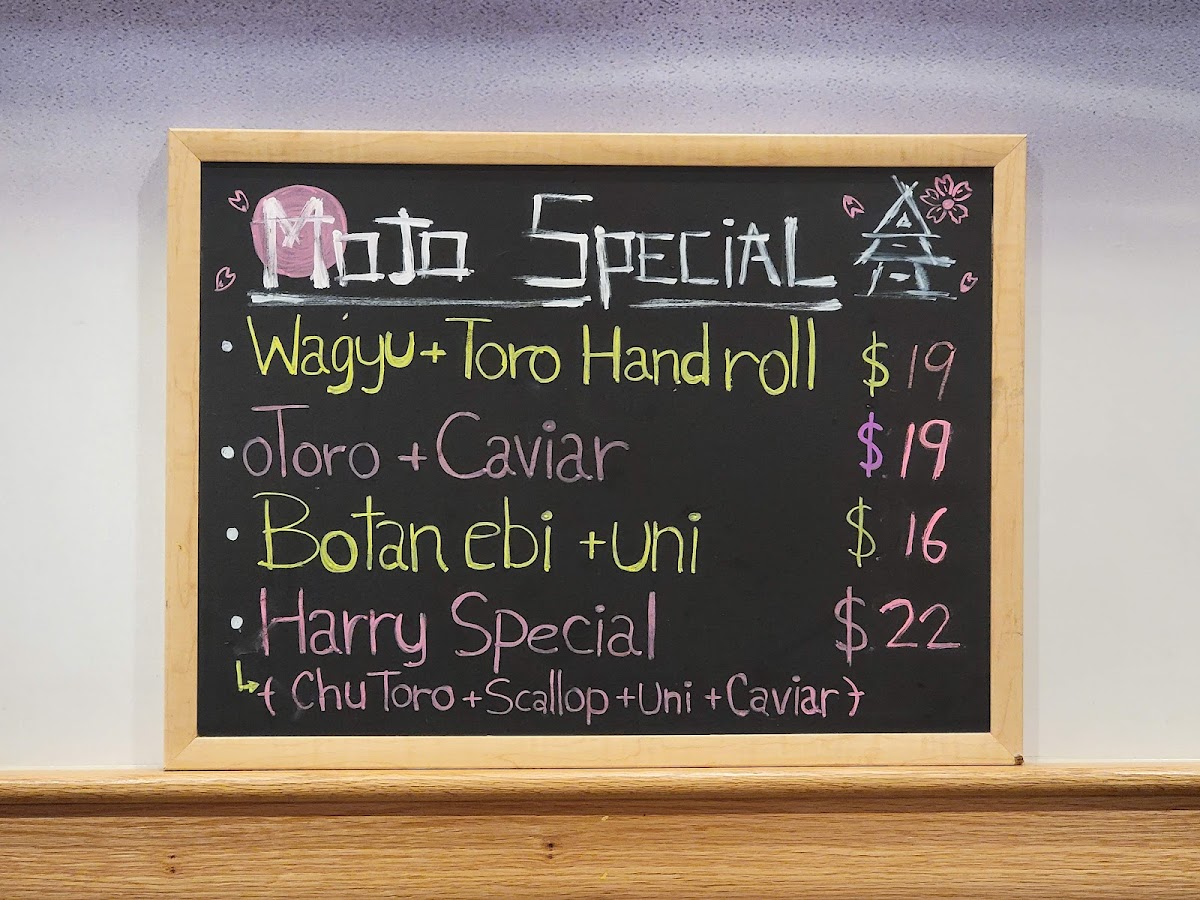 Mojo Special
• Wagyu + Toro Hand roll $19
• oToro + Caviar $19
• Botan ebi + uni $16
• Harry Special $22
{ Chu Toro + Scallop + Uni + Caviar }